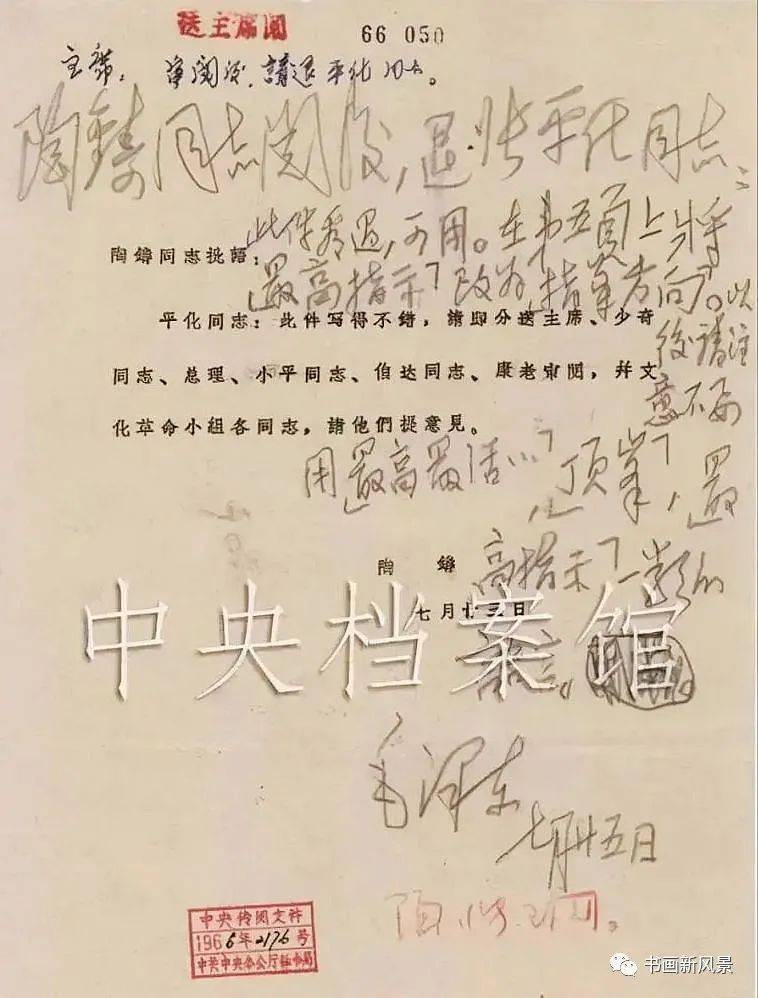 送主席阅
66 050
主席：审阅后，請退平化同志。
陶鑄同志阅后，退张平化同志：
此件看过，可用。在第五頁上将
「最高指示」改为「指导方向」。以
后請注
意不要
用「最高最活…」，「顶峯」，「最
高指示」一类的
語言。
毛泽东
七月廿五日
陶鑄同志批語：
平化同志：此件写得不错，請即分送主席、少奇
同志、总理、小平同志、伯达同志、康老审閱，幷文
化革命小組各同志，請他們提意見。
陶 鑄
七月廿三日
中央档案馆
陶
中央传阅文件
1966年2176号
中共中央办公厅秘书局
书画新风景